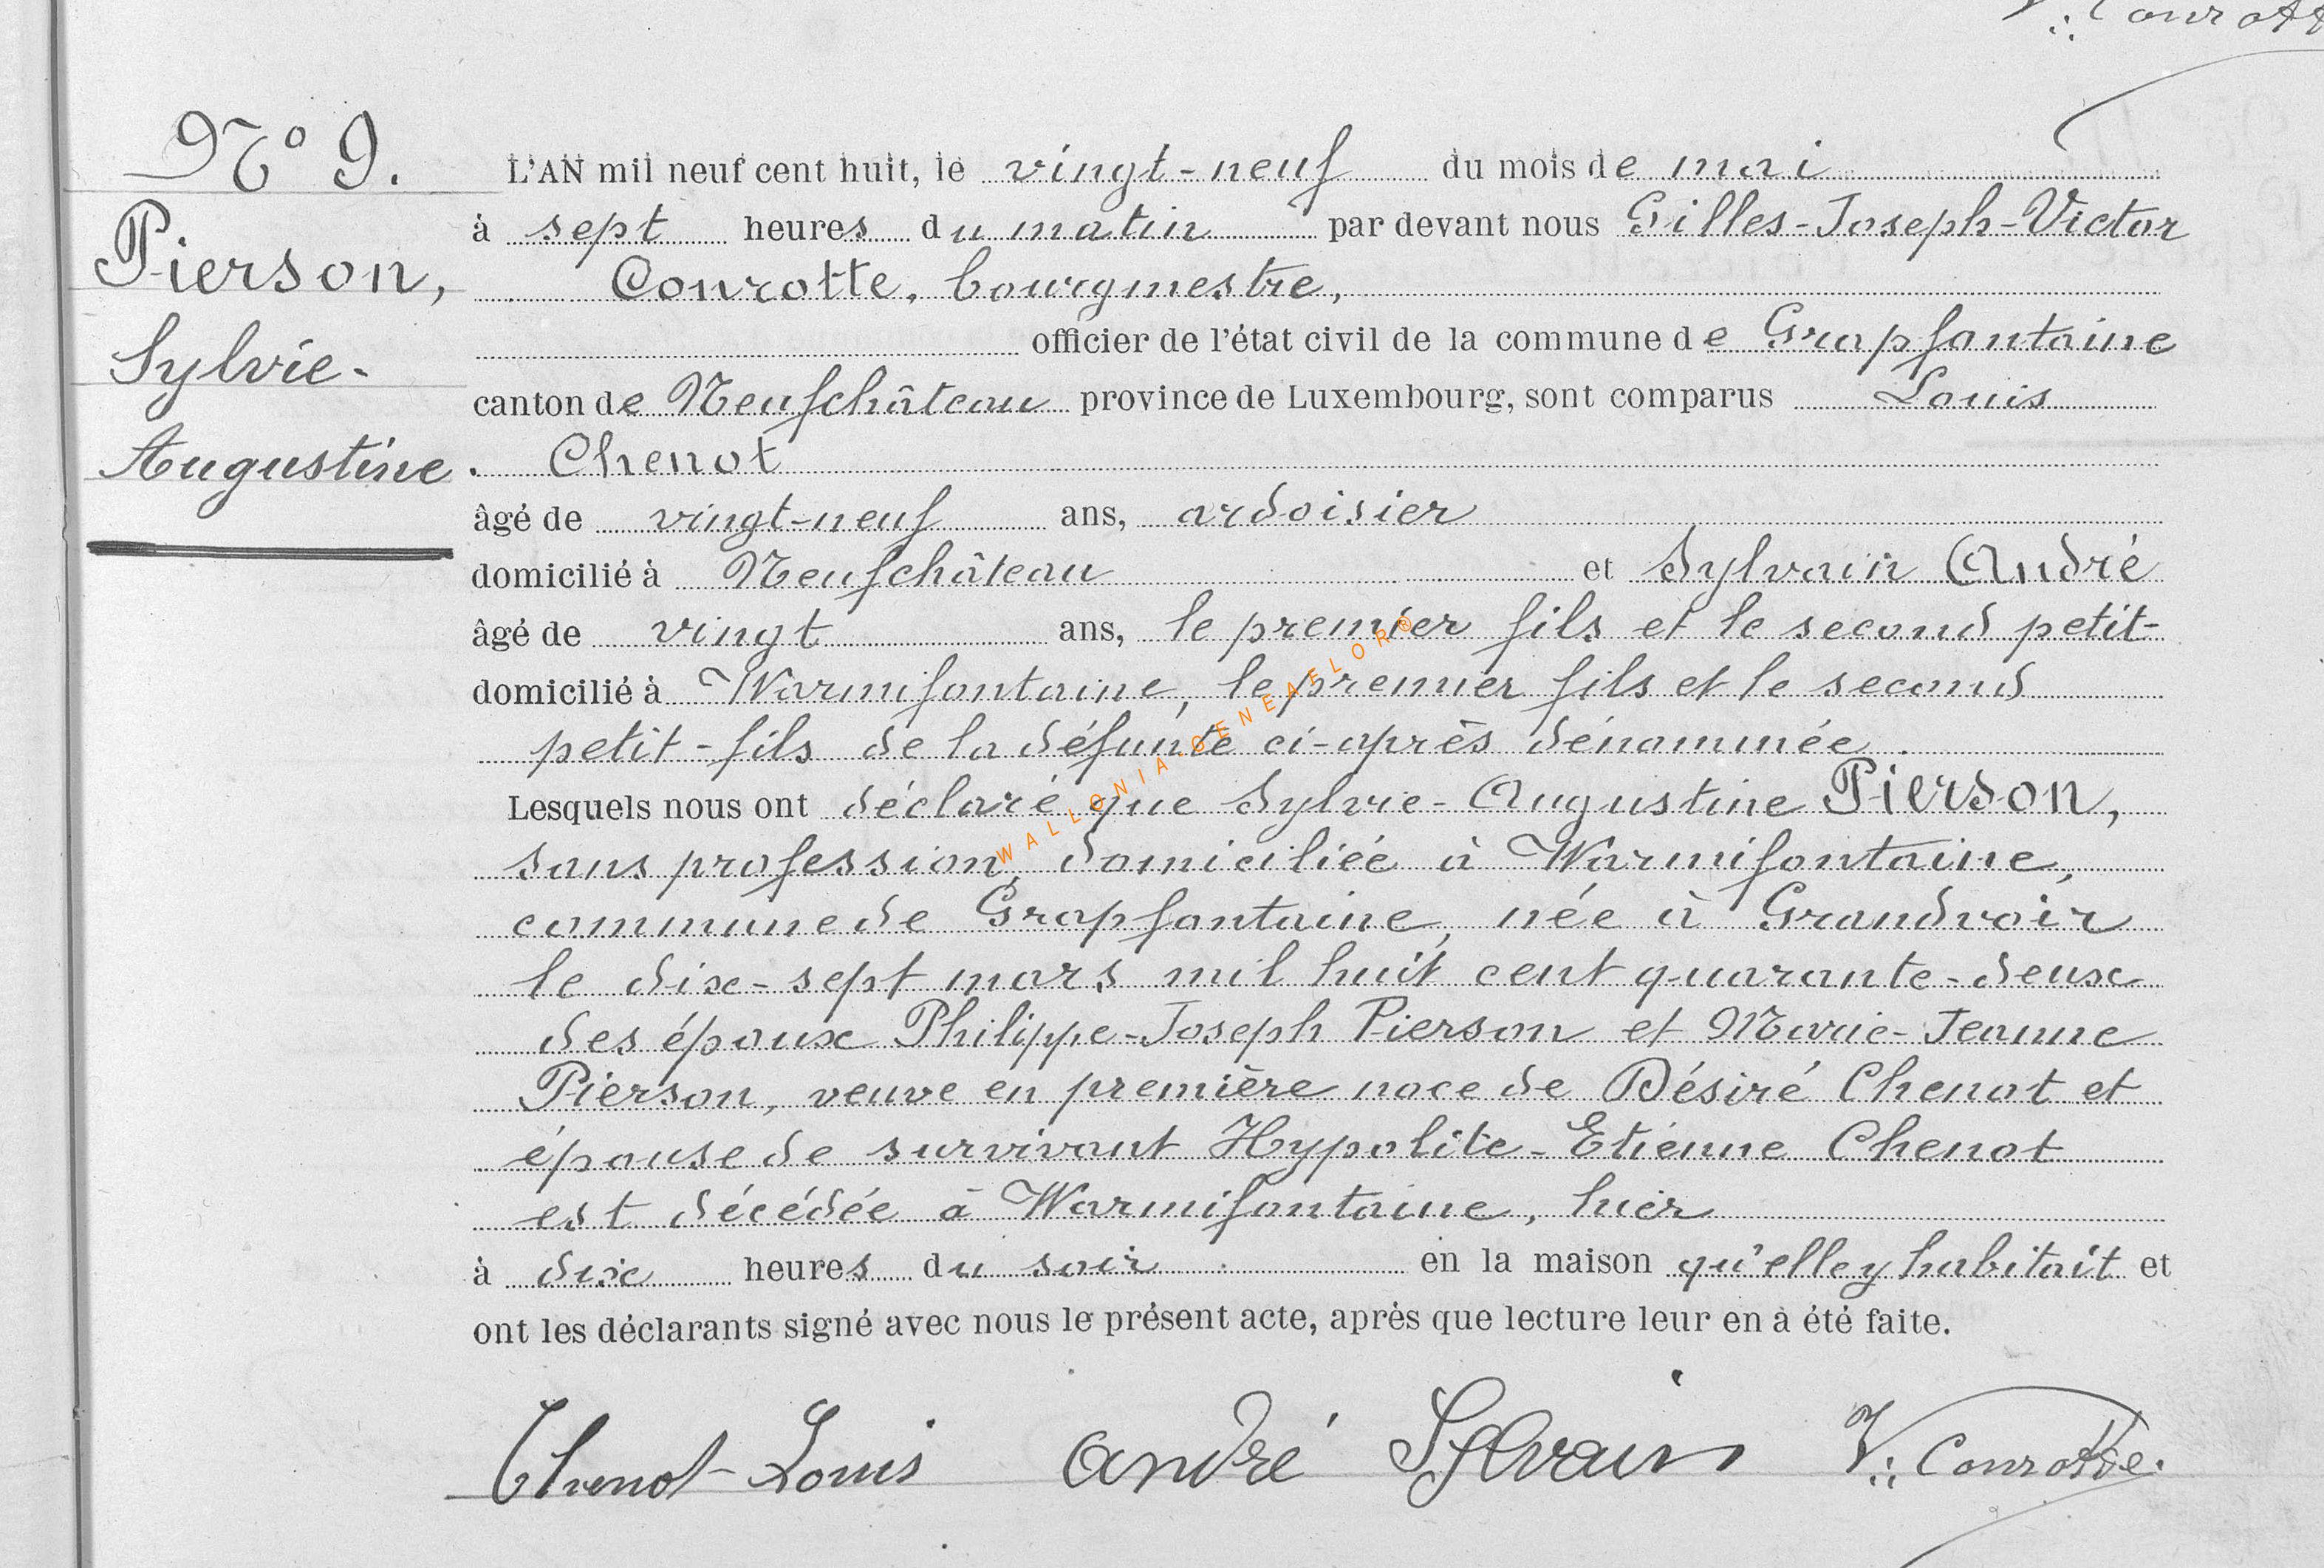 V. Conrotte
N° 9.
Pierson,
Sylvie-
Augustine.
L'AN mil neuf cent huit, le vingt-neuf du mois de mai
à sept heures du matin par devant nous Gilles-Joseph-Victor
Conrotte, bourgmestre,
officier de l'état civil de la commune de Grapfontaine
canton de Neufchâteau province de Luxembourg, sont comparus Louis
Chenot
âgé de vingt-neuf ans, ardoisier
domicilié à Neufchâteau et Sylvain André
âgé de vingt ans, le premier fils et le second petit-
domicilié à Warmifontaine, le premier fils et le second
petit-fils de la défunte ci-après dénommée.
Lesquels nous ont déclaré que Sylvie-Augustine Pierson,
sans profession, domiciliée à Warmifontaine,
commune de Grapfontaine, née à Grandvoir
le dix-sept mars mil huit cent quarante-deux
des époux Philippe-Joseph Pierson et Marie-Jeanne
Pierson, veuve en première noce de Désiré Chenot et
épouse de survivant Hypolite-Etienne Chenot
est décédée à Warmifontaine, hier
à dix heures du soir en la maison qu'elle y habitait et
ont les déclarants signé avec nous le présent acte, après que lecture leur en à été faite.
Chenot Louis André Sylvain V. Conrotte.
WALLONIA-GENEAELOR®